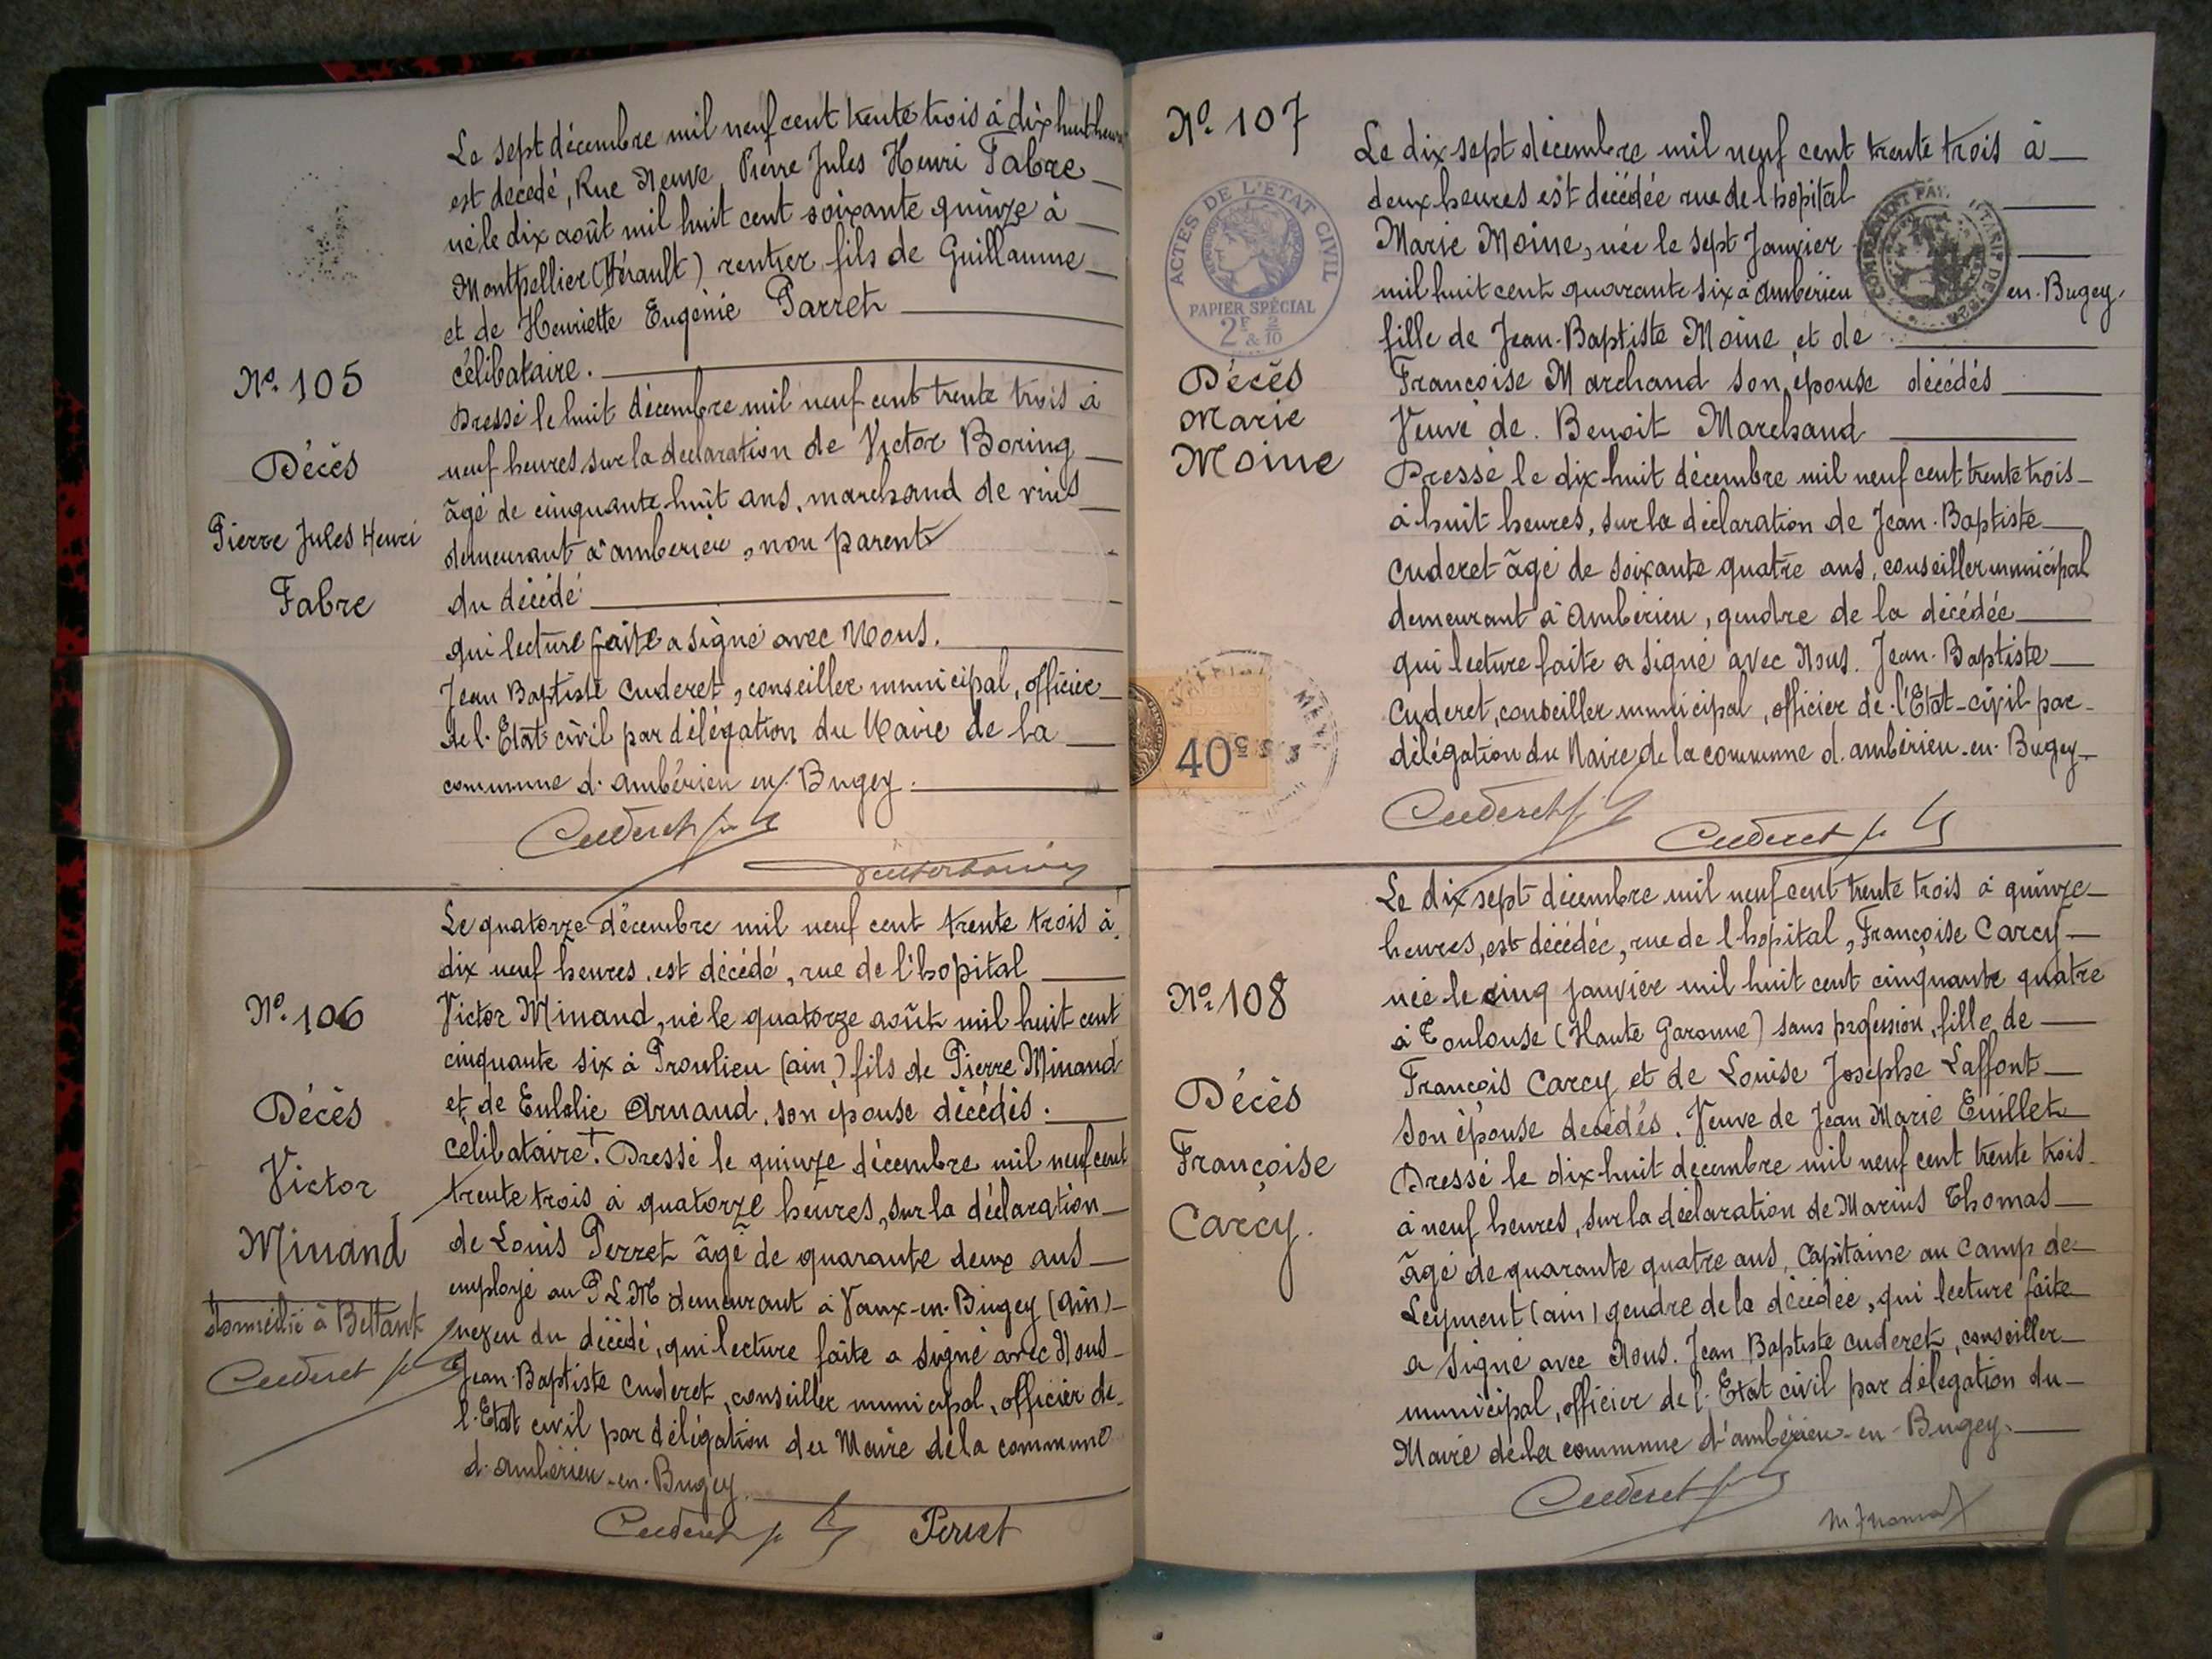 Nº 105
Décès
Pierre Jules Henri
Fabre
Le sept décembre mil neuf cent trente trois à dix huit heures
est décedé, Rue Neuve Pierre Jules Henri Fabre
né le dix août mil huit cent soixante quinze à
Montpellier (Hérault) rentier fils de Guillaume
et de Henriette Eugénie Parret
célibataire.
Dressé le huit décembre mil neuf cent trente trois à
neuf heures sur la declaration de Victor Boring
âgé de cinquante huit ans, marchand de vins
demeurant à ambérieu, non parent
du décédé
qui lecture faite a signé avec Nous.
Jean Baptiste Cuderet, conseiller municipal, officier
de l'Etat civil par délégation du Maire de la
commune d'ambérieu en Bugey.
Cuderet
Nº 106
Décès
Victor
Minand
domicilié à Bettant
Cuderet
Le quatorze décembre mil neuf cent trente trois à
dix neuf heures, est décédé, rue de l'hopital
Victor Minand, né le quatorze août mil huit cent
cinquante six à Proulieu (ain) fils de Pierre Minand
et de Eulalie Arnaud, son épouse décédés.
célibataire+. Dressé le quinze décembre mil neuf cent
trente trois à quatorze heures, sur la déclaration
de Louis Perret âgé de quarante deux ans
employé au PLM demeurant à Vaux-en-Bugey (ain)
neveu du décédé, qui lecture faite a signé avec Nous
Jean-Baptiste Cuderet, conseiller municipal, officier de
l'Etat civil par délégation du Maire de la commune
d'ambérieu-en-Bugey.
Cuderet Perret
Nº 107
ACTES DE L'ETAT CIVIL
PAPIER SPÉCIAL
2F & 2/10
Décès
Marie
Moine
40c
Le dix sept décembre mil neuf cent trente trois à
deux heures est décédée rue de l'hopital
Marie Moine, née le sept Janvier
mil huit cent quarante six à ambérieu en-Bugey.
fille de Jean-Baptiste Moine, et de
Françoise Marchand son épouse décédés
Veuve de Benoit Marchand
Dressé le dix huit décembre mil neuf cent trente trois
à huit heures, sur la déclaration de Jean-Baptiste
Cuderet âgé de soixante quatre ans, conseiller municipal
demeurant à Ambérieu, gendre de la décédée
qui lecture faite a signé avec Nous. Jean-Baptiste
Cuderet, conseiller municipal, officier de l'Etat-civil par
délégation du Maire de la commune d'ambérieu-en-Bugey
Cuderet
Cuderet
Nº 108
Décès
Françoise
Carcy.
Le dix sept décembre mil neuf cent trente trois à quinze
heures, est décédée, rue de l'hopital, Françoise Carcy
née le cinq janvier mil huit cent cinquante quatre
à Toulouse (Haute Garonne) sans profession, fille de
François Carcy et de Louise Josephe Laffont
son épouse decédés. Veuve de Jean Marie Euillet
Dressé le dix-huit décembre mil neuf cent trente trois
à neuf heures, sur la déclaration de Marius Thomas
âgé de quarante quatre ans, Capitaine au camp de
Leyment (ain) gendre de la décédée, qui lecture faite
a signé avec Nous. Jean Baptiste Cuderet, conseiller
municipal, officier de l'Etat civil par délégation du
Maire de la commune d'ambérieu-en-Bugey.
Cuderet